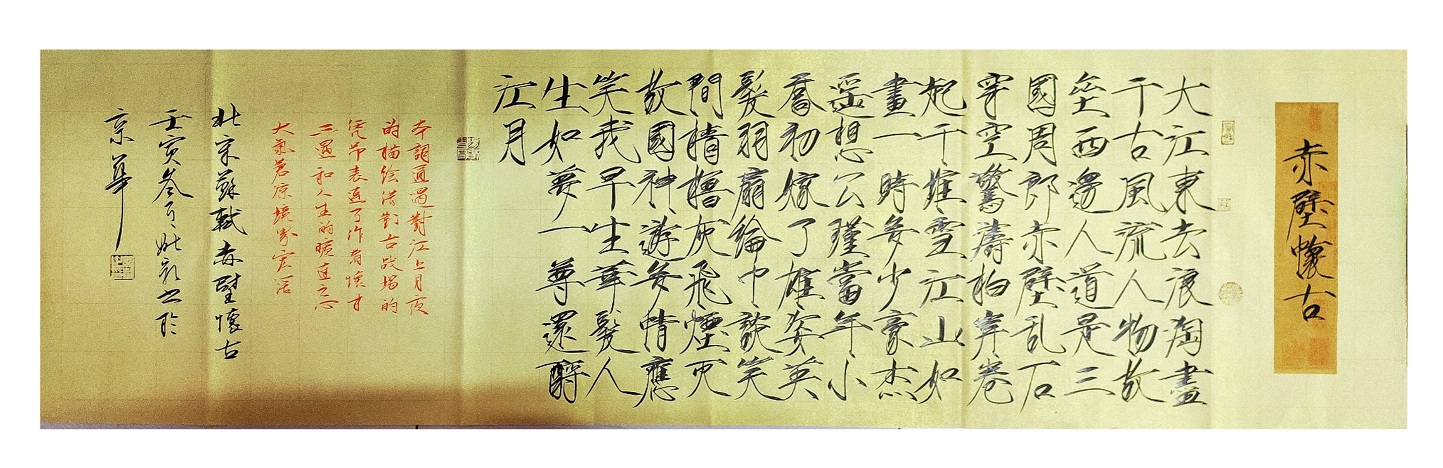 赤壁懷古
大江東去浪淘盡
千古風流人物故
壘西邊人道是三
國周郎赤壁乱石
穿空驚濤拍岸卷
起千堆雪江山如
畫一時多少豪杰
遥想公瑾當年小
喬初嫁了雄姿英
髮羽扇綸巾談笑
間檣櫓灰飛煙灭
故國神游多情應
笑我早生華髮人
生如夢一尊還酹
江月
本詞通過對江上月夜
的描绘借對古战場的
凭吊表達了作者懷才
不遇和人生的曠達之心
大氣苍凉境界宏活
北宋蘇軾赤壁懷古
壬寅叁月書於
京華